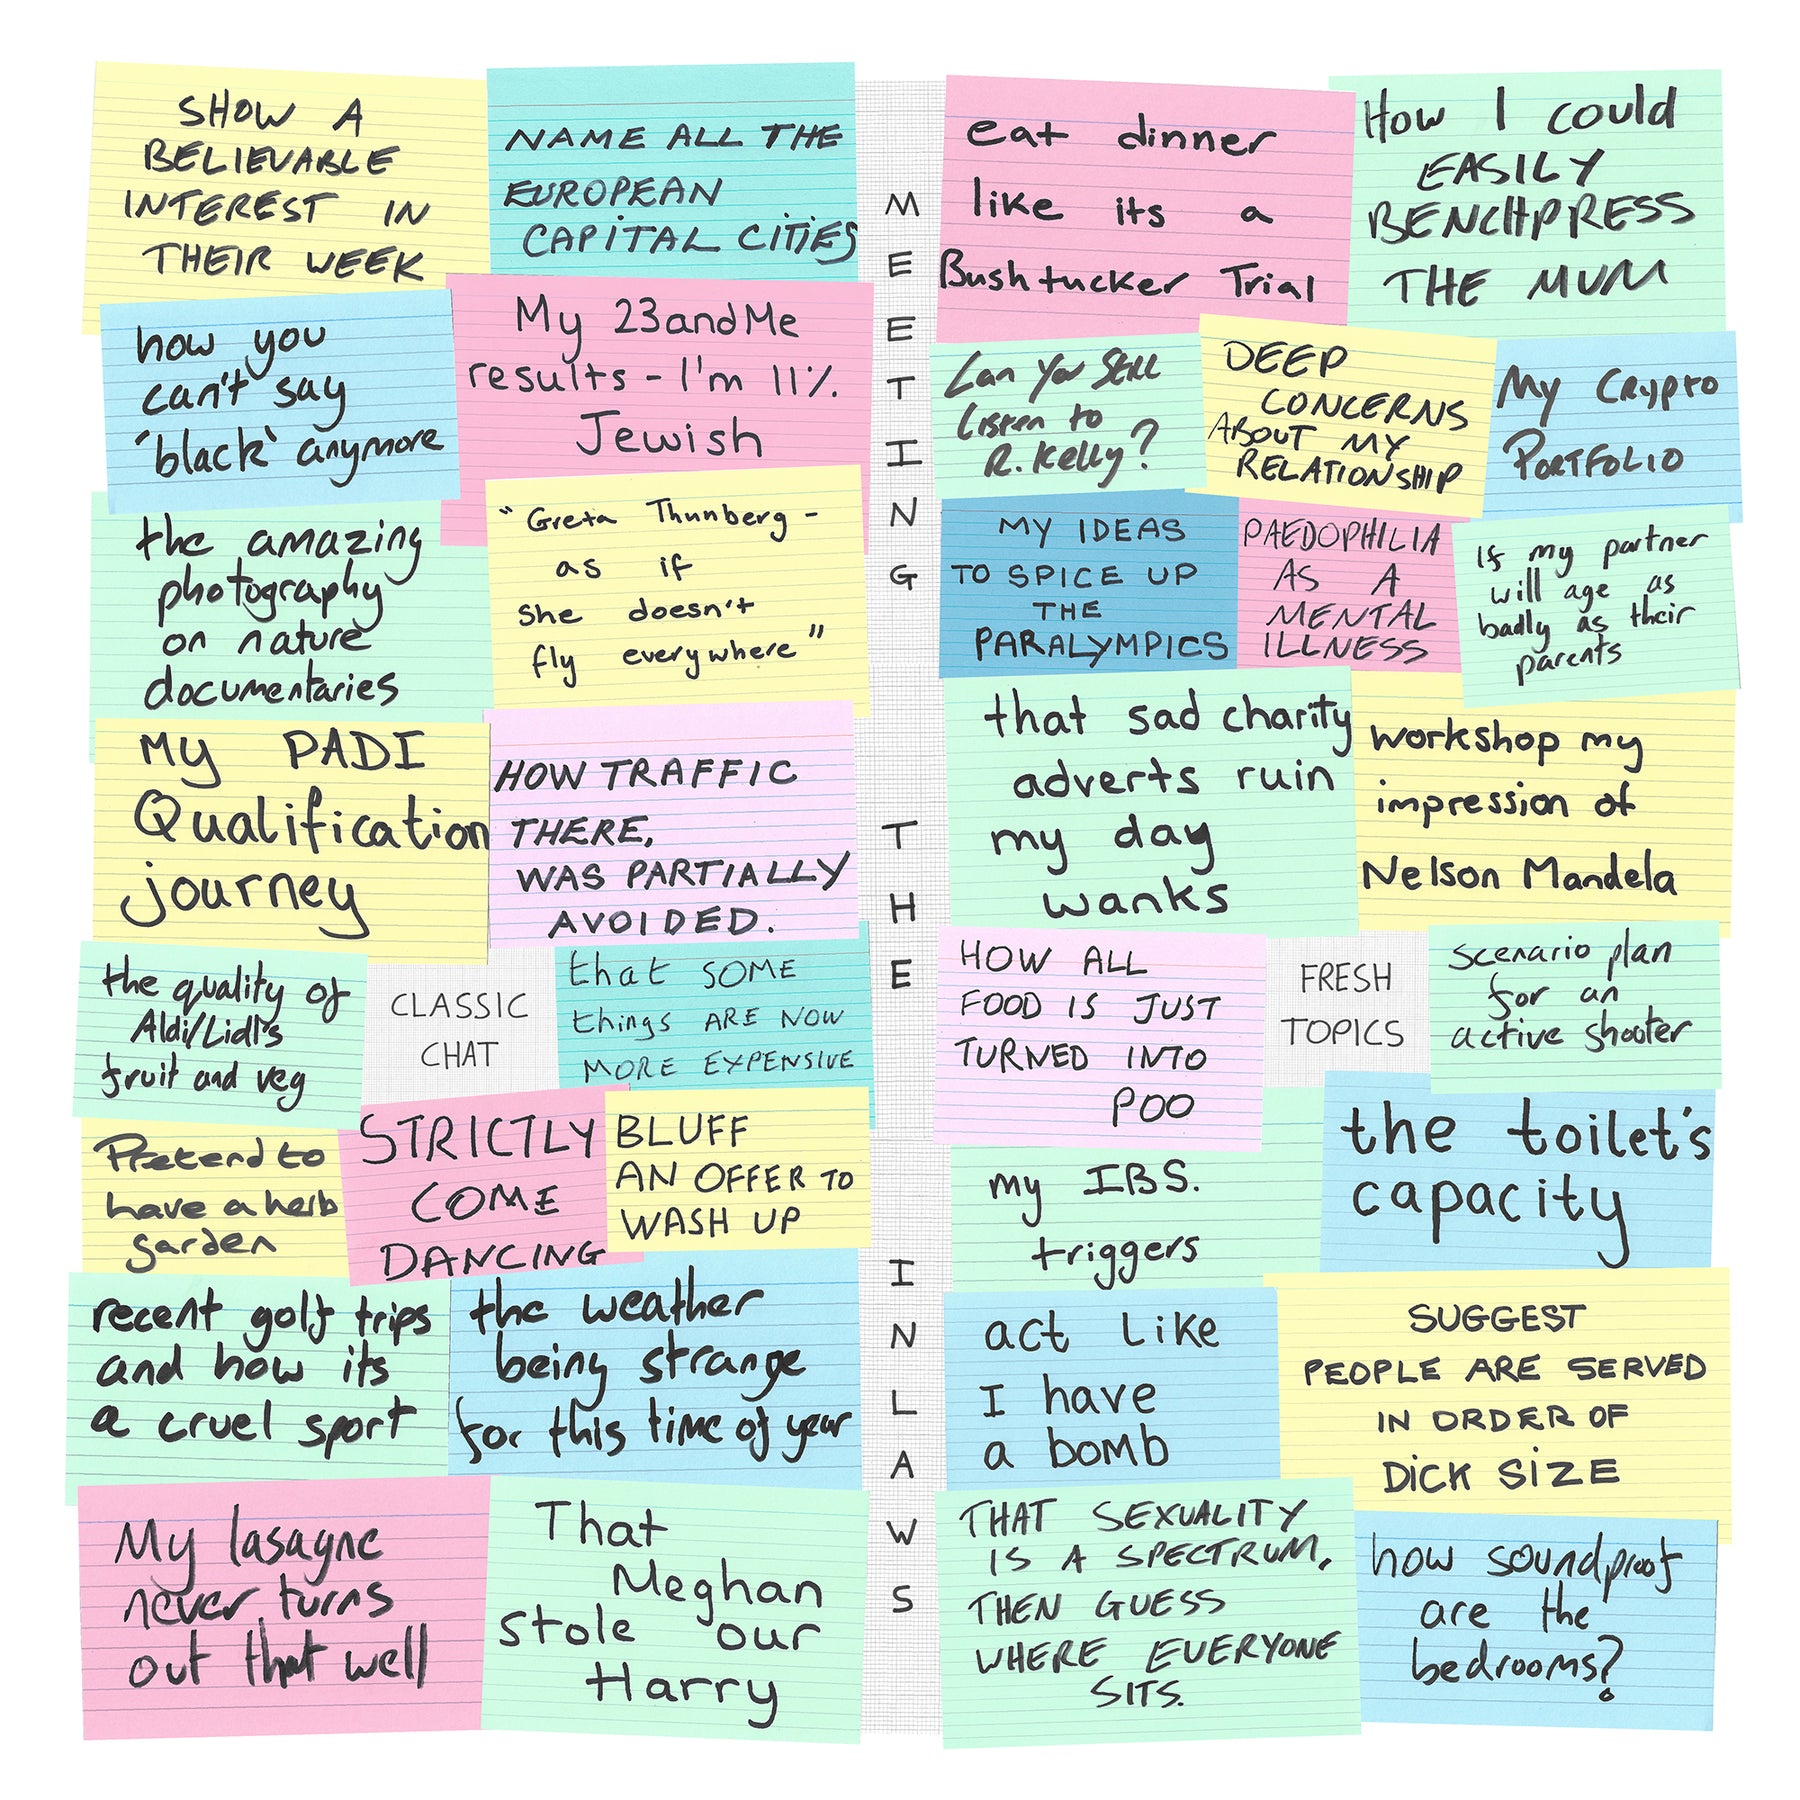 SHOW A
BELIEVABLE
INTEREST IN
THEIR WEEK
NAME ALL THE
EUROPEAN
CAPITAL CITIES
how you
can't say
'black' anymore
My 23andMe
results - I'm 11%
Jewish
the amazing
photography
on nature
documentaries
"Greta Thunberg -
as if
she doesn't
fly everywhere"
My PADI
Qualification
journey
HOW TRAFFIC
THERE,
WAS PARTIALLY
AVOIDED.
the quality of
Aldi/Lidl's
fruit and veg
CLASSIC
CHAT
that SOME
things ARE NOW
MORE EXPENSIVE
Pretend to
have a herb
garden
STRICTLY
COME
DANCING
BLUFF
AN OFFER TO
WASH UP
recent golf trips
and how its
a cruel sport
the weather
being strange
for this time of year
My lasagne
never turns
out that well
That
Meghan
stole our
Harry
MEETING
THE
INLAWS
eat dinner
like its a
Bushtucker Trial
How I could
EASILY
BENCHPRESS
THE MUM
Can You Still
Listen to
R. Kelly?
DEEP
CONCERNS
ABOUT MY
RELATIONSHIP
My Crypto
PORTFOLIO
MY IDEAS
TO SPICE UP
THE
PARALYMPICS
PAEDOPHILIA
AS A
MENTAL
ILLNESS
If my partner
will age as
badly as their
parents
that sad charity
adverts ruin
my day
wanks
workshop my
impression of
Nelson Mandela
HOW ALL
FOOD IS JUST
TURNED INTO
POO
FRESH
TOPICS
scenario plan
for an
active shooter
my IBS.
triggers
the toilet's
capacity
act like
I have
a bomb
SUGGEST
PEOPLE ARE SERVED
IN ORDER OF
DICK SIZE
THAT SEXUALITY
IS A SPECTRUM,
THEN GUESS
WHERE EVERYONE
SITS.
how soundproof
are the
bedrooms?